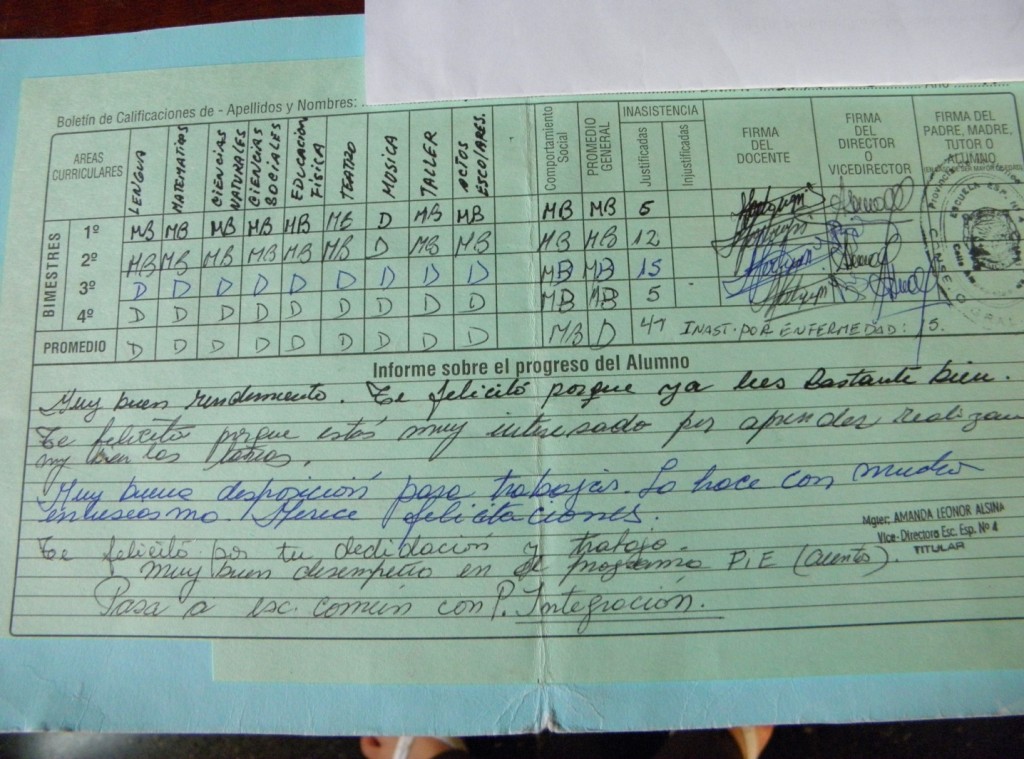 Boletín de Calificaciones de - Apellidos y Nombres:
AREAS CURRICULARES LENGUA MATEMATICAS CIENCIAS NATURALES CIENCIAS SOCIALES EDUCACION FISICA TEATRO MUSICA TALLER ACTOS ESCOLARES. Comportamiento Social PROMEDIO GENERAL INASISTENCIA Justificadas Injustificadas FIRMA DEL DOCENTE FIRMA DEL DIRECTOR O VICEDIRECTOR FIRMA DEL PADRE, MADRE, TUTOR O ALUMNO
BIMESTRES
1º MB MB MB MB MB MB D MB MB MB MB 5
2º MB MB MB MB MB MB D MB MB MB MB 12
3º D D D D D D D D D MB MB 15
4º D D D D D D D D D MB MB 5
PROMEDIO D D D D D D D D D MB D INAST. POR ENFERMEDAD: 15.
Informe sobre el progreso del Alumno
Muy buen rendimiento. Te felicitó porque ya lees bastante bien.
Te felicitó porque estás muy interesado por aprender realizan
my bien las
Muy buena disposición para trabajar. Lo hace con mucho
entuseasmo. Merece felicitaciones.
Te felicitó por tu dedidación y trabajo.
Muy buen desempeño en programa P.I.E (cuentos).
Pasa a esc. común con P. Integración.
Mgter. AMANDA LEONOR ALSINA
Vice-Directora Esc. Esp. Nº 4
TITULAR
ESCUELA ESP. Nº 4